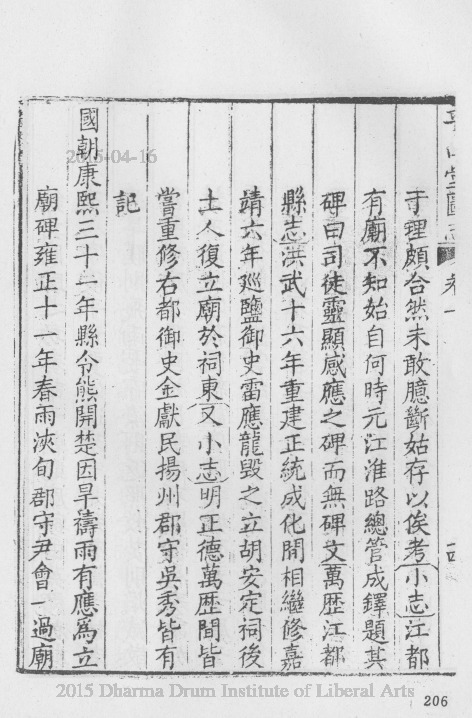 平山堂圖志 卷一
于理頗合然未敢臆斷姑存以俟考小志江都
有廟不知始自何時元江淮路總管成鐸題其
碑曰司徒靈顯感應之碑而無碑文萬歷江都
縣志洪武十六年重建正統成化間相繼修嘉
靖六年廵鹽御史雷應龍毀之立胡安定祠後
土人復立廟於祠東又小志明正德萬歷間皆
嘗重修右都御史金獻民揚州郡守吳秀皆有
記
國朝康熙三十一年縣令熊開楚因旱禱雨有應爲立
廟碑雍正十一年春雨浹旬郡守尹會一過廟
2015-04-16
2015 Dharma Drum Institute of Liberal Arts
206